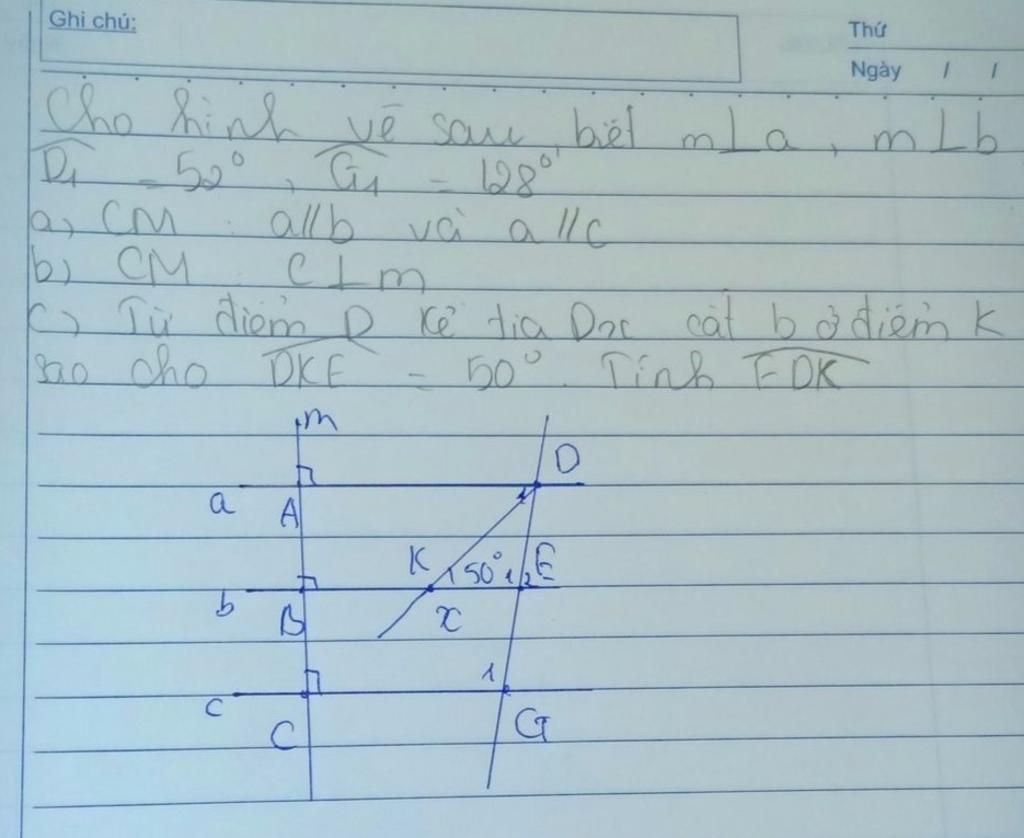 Ghi chú:
Thứ
Ngày / /
Cho hình vẽ sau, biết m⊥a, m⊥b
D₁ = 52°, G₁ = 128°
a, CM: a//b và a//c
b) CM c⊥m
c) Từ điểm D kẻ tia Dx cắt b ở điểm K
sao cho DKE = 50°. Tính EDK
m
D
a A 1
K 50° 1 2 E
b B x
1
c C G